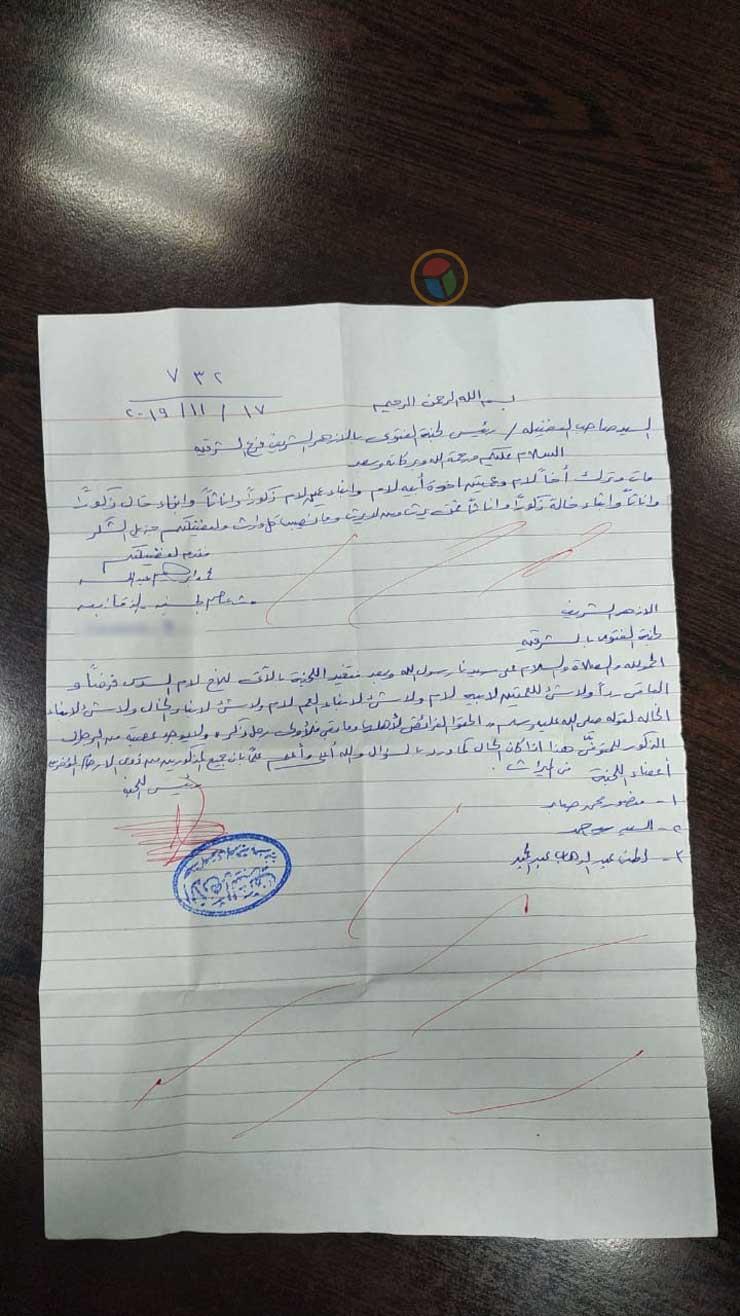 ٧٣٢
٢٠١٩/١١/١٧
بسم الله الرحمن الرحيم
السيد صاحب الفضيلة / رئيس لجنة الفتوى بالأزهر الشريف فرع الشرقية
السلام عليكم ورحمة الله وبركاته وبعد
مات وترك أخاً لأم وعمتين اخوة أبيه لأم وابناء عم لأم ذكوراً واناثاً وابناء خال ذكوراً
واناثاً وابناء خالة ذكوراً واناثاً فمن يرث ومن لا يرث وما نصيب كل وارث ولفضيلتكم جزيل الشكر
مقدم لفضيلتكم
الأزهر الشريف
لجنة الفتوى بالشرقية
الحمد لله والصلاة والسلام على سيدنا رسول الله وبعد تفيد اللجنة بالآتى للأخ لأم السدس فرضاً و
الباقى رداً ولا شئ للعمتين لأبيه لأم ولا شئ لابناء العم لأم ولا شئ لابناء الخال ولا شئ لابناء
الخاله لقوله صلى الله عليه وسلم الحقوا الفرائض بأهلها وما بقى فلأولى رجل ذكر ولا يوجد عصبة من الرجال
الذكور للمتوفى هذا اذا كان الحال كما ورد بالسؤال والله أعلى وأعلم علماً بأن جميع المذكورين من ذوى الأرحام المؤخرين
فى الميراث.
أعضاء اللجنة
رئيس اللجنة
١- منصور محمد صابر
٢- السيد
٣- لطفى عبد الوهاب عبد